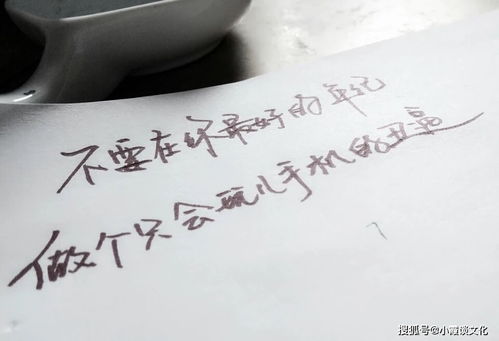 不要在你最好的年纪
做个只会玩儿手机的丑逼
搜狐号@小霞谈文化